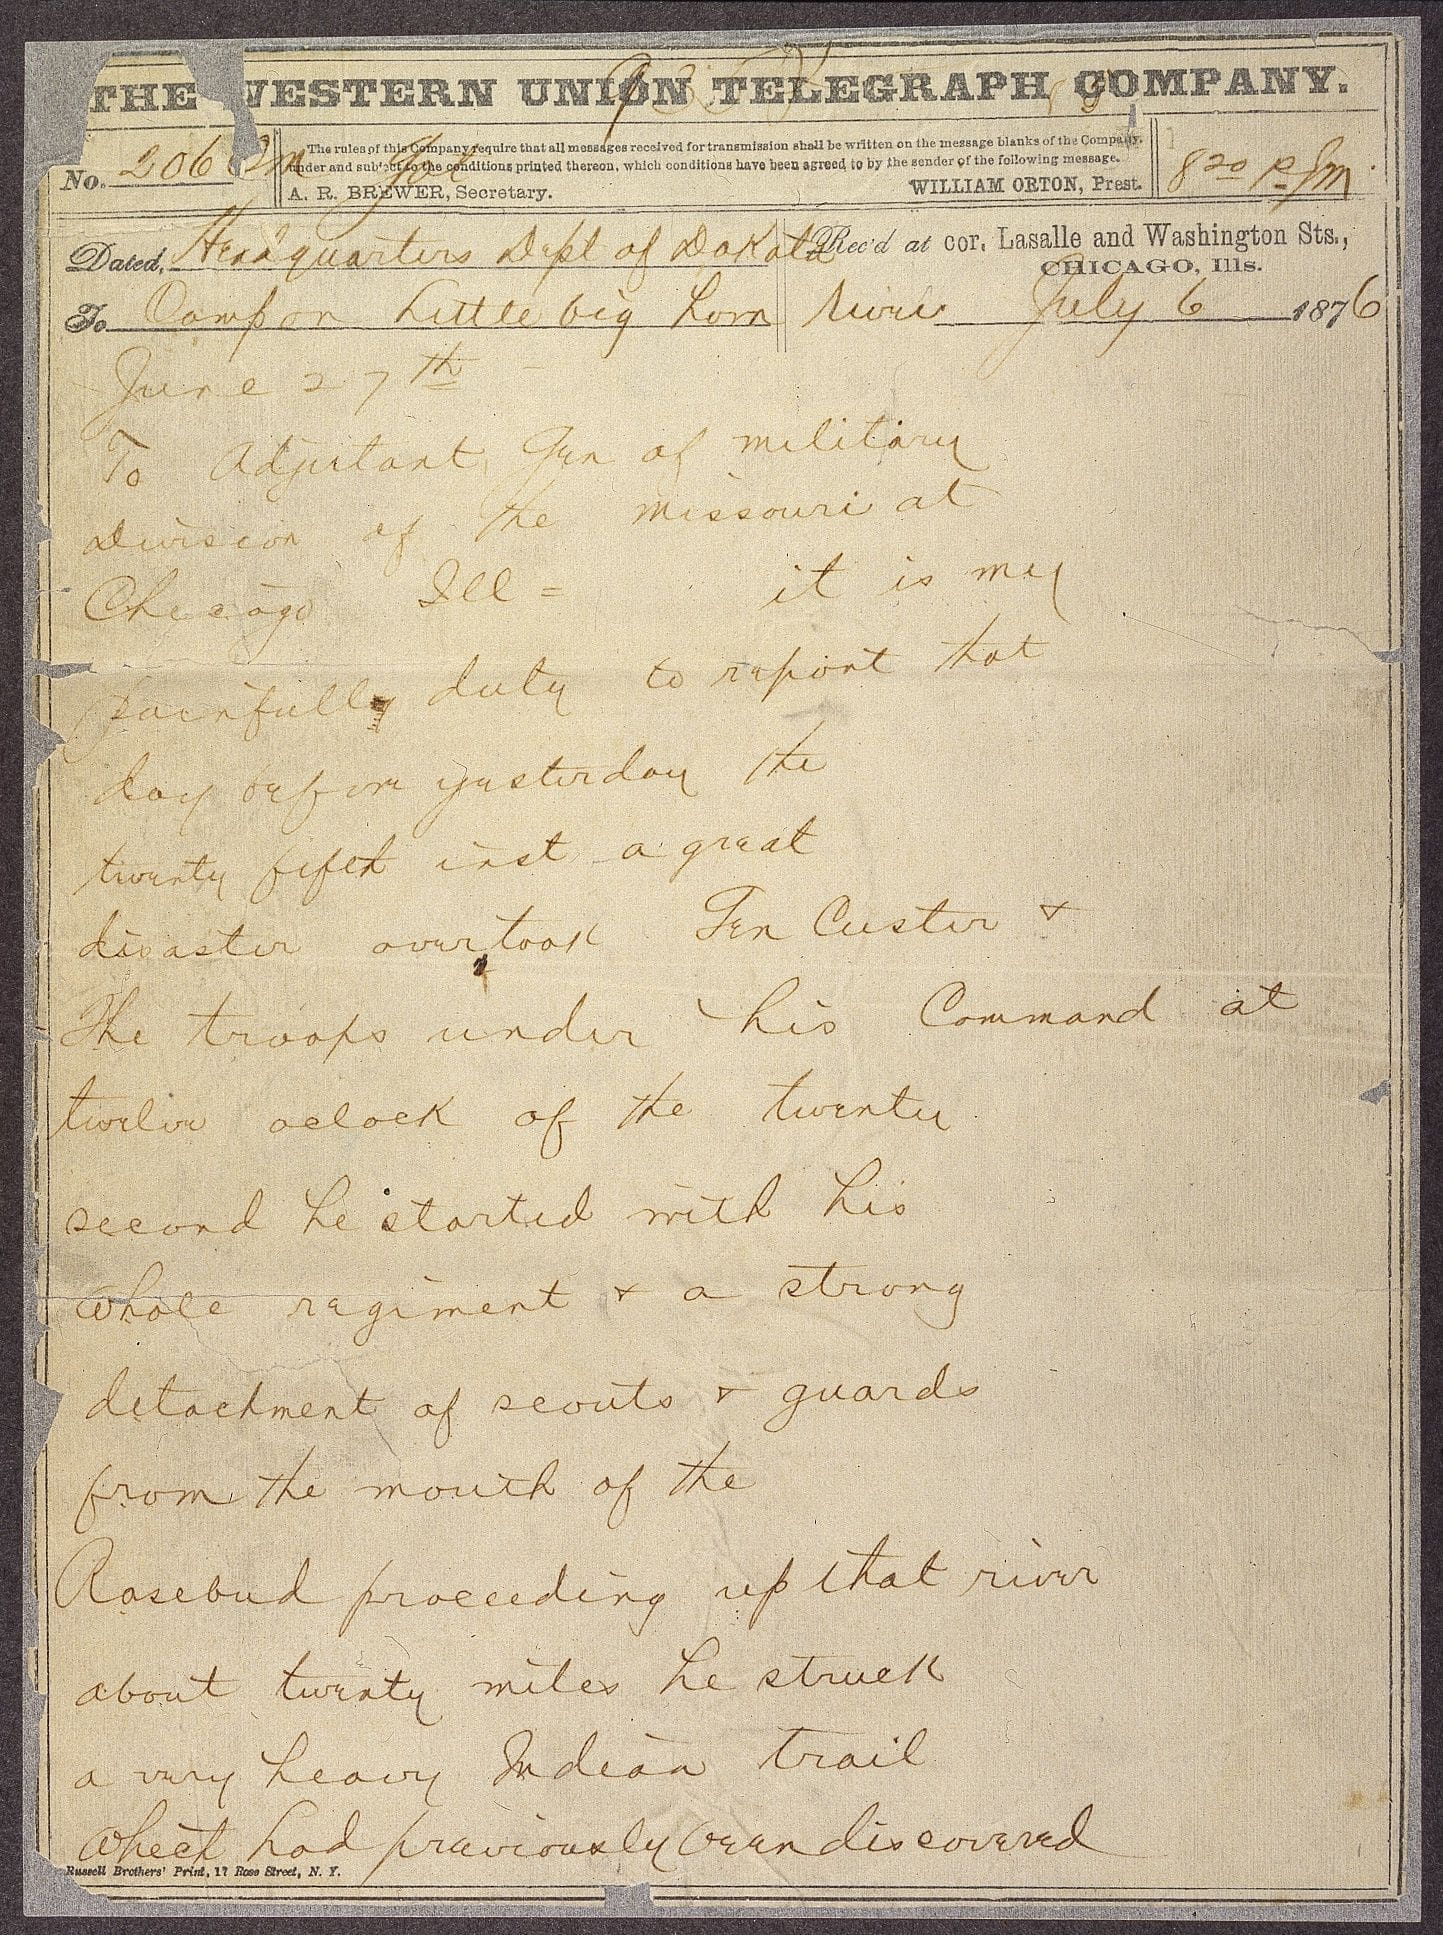 THE WESTERN UNION TELEGRAPH COMPANY.
The rules of this Company require that all messages received for transmission shall be written on the message blanks of the Company,
under and subject to the conditions printed thereon, which conditions have been agreed to by the sender of the following message.
No. 206
A. R. BREWER, Secretary. WILLIAM ORTON, Prest.
8 20 P Jm
Dated, Headquarters Dept of Dakota Rec'd at cor. Lasalle and Washington Sts.,
CHICAGO, Ills.
To Camp on Little big horn River July 6 1876
June 27th
To Adjutant Gen of military
Division of the missouri at
Chicago Ill = it is my
painfully duty to report that
day before yesterday the
twenty fifth inst a great
disaster overtook Gen Custer &
The troops under his Command at
twelve oclock of the twenty
second he started with his
whole regiment & a strong
detachment of scouts & guards
from the mouth of the
Rosebud proceeding up that river
about twenty miles he struck
a very heavy Indian trail
which had previously been discovered
Russell Brothers' Print, 17 Rose Street, N. Y.